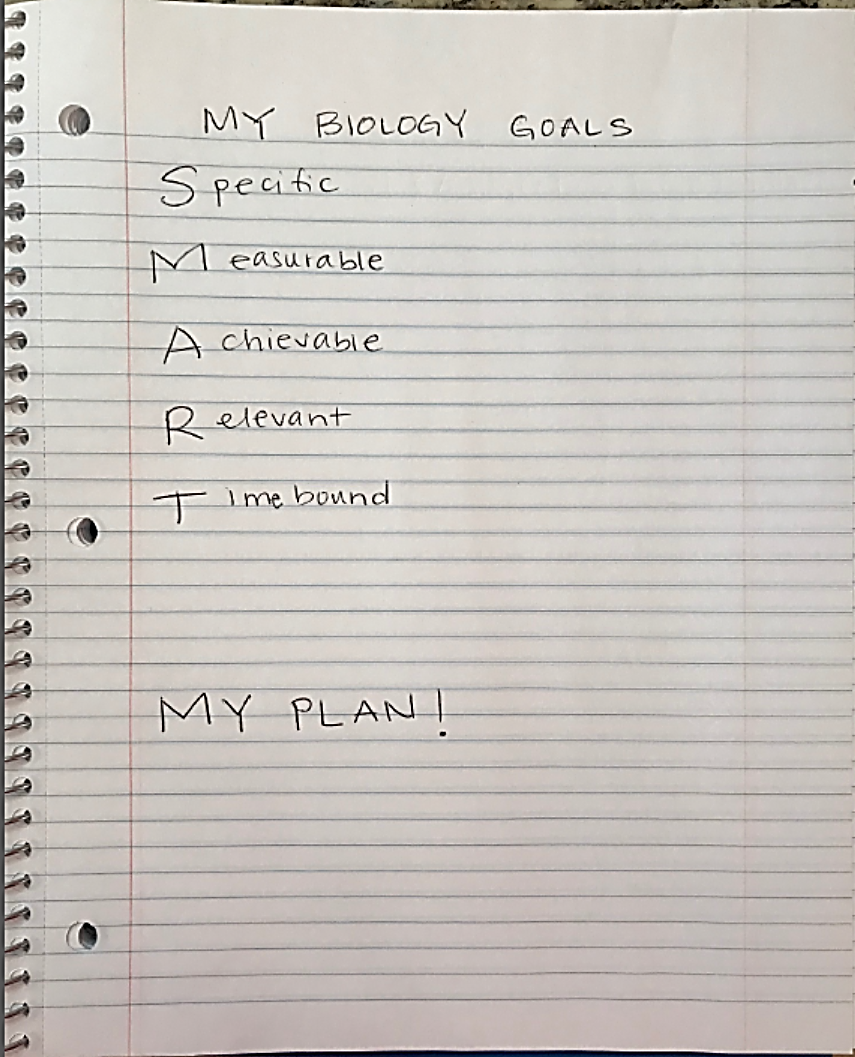 MY BIOLOGY GOALS
Specific
Measurable
Achievable
Relevant
Time bound
MY PLAN!